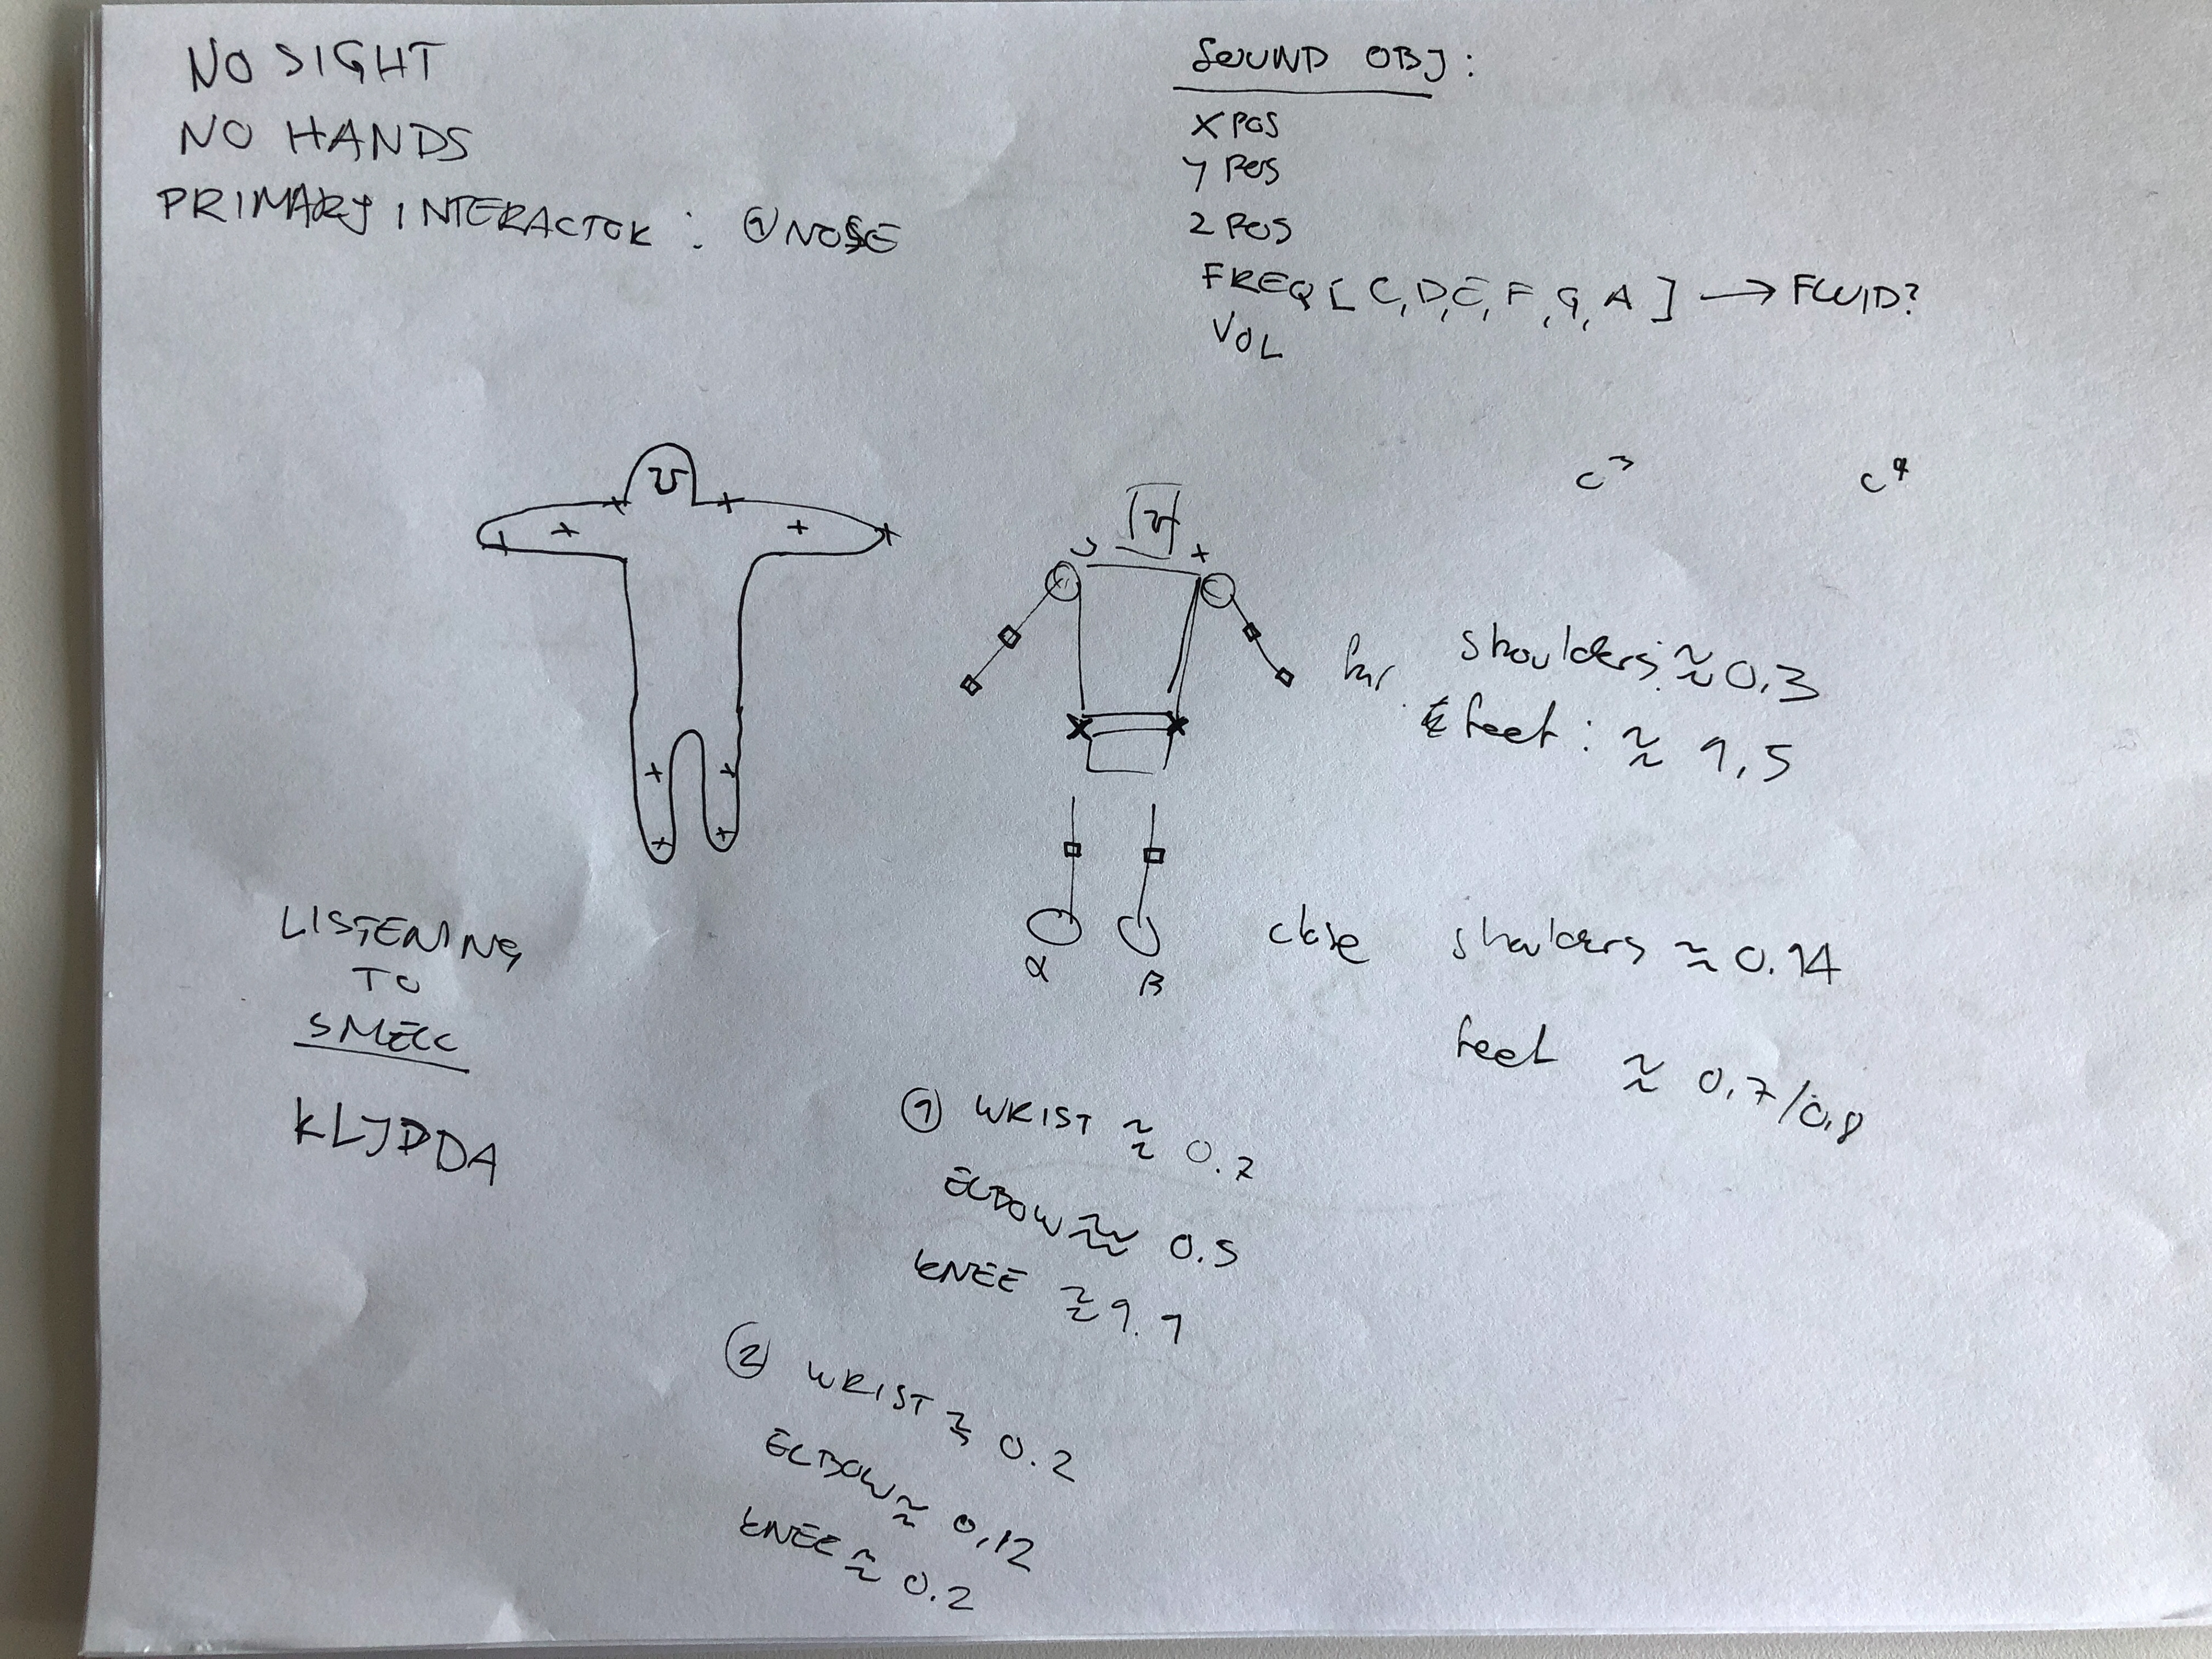 NO SIGHT
NO HANDS
PRIMARY INTERACTOR: ① NOSE
SOUND OBJ:
X POS
Y POS
Z POS
FREQ [C, D, E, F, G, A] → FLUID?
VOL
C³ C⁴
far shoulders: ≈ 0.3
feet: ≈ 1,5
α B
close shoulders ≈ 0.14
feet ≈ 0,7/0,8
LISTENING
TO
SMELL
KLJDDA
① WRIST ≈ 0.7
ELBOW ≈ 0.5
KNEE ≈ 1.1
② WRIST ≈ 0.2
ELBOW ≈ 0,12
KNEE ≈ 0.2